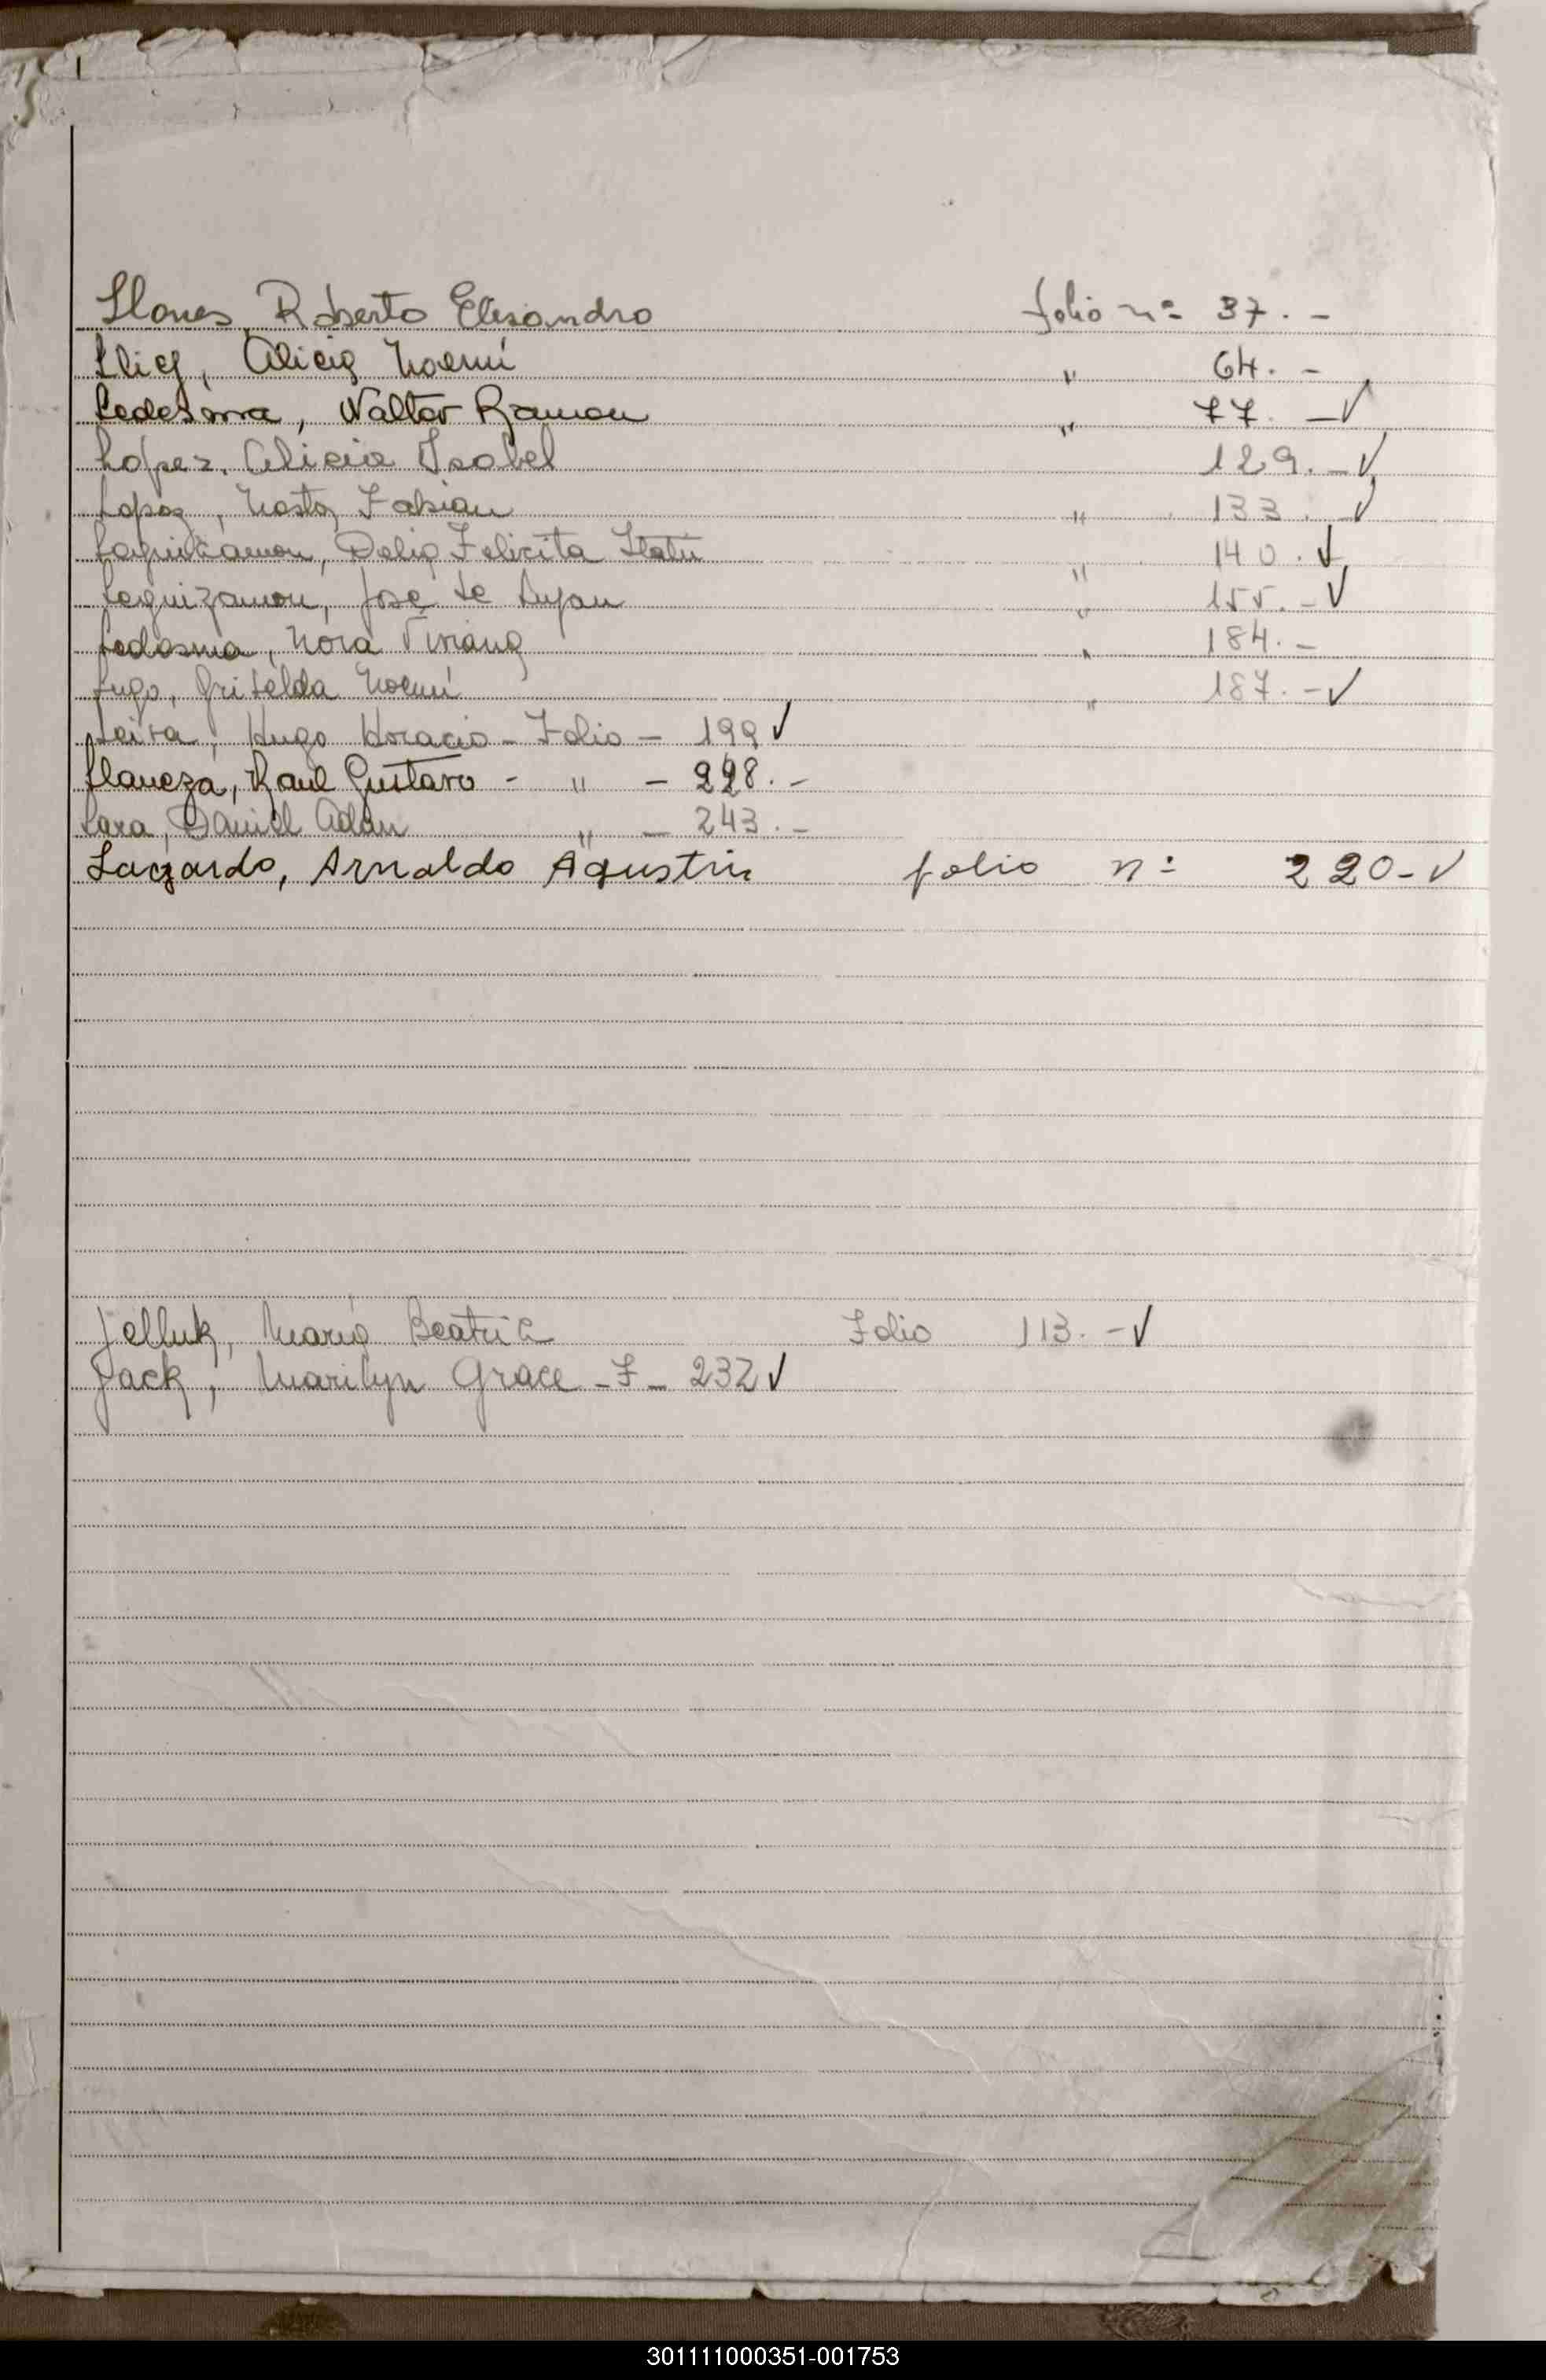 Llanes, Roberto Elisandro folio nº 37. -
Llich, Alicia Noemí " 64. -
Ledesma, Walter Ramon " 77. - ✓
Lopez, Alicia Isabel 129. - ✓
Lopez, Nestor Fabian " 133. ✓
Leguizamon, Delia Felicita Itatí " 140. ✓
Leguizamon, José de Lujan " 155. - ✓
Ledesma, Nora Viviana " 184. -
Lugo, Griselda Noemí " 187. - ✓
Leiva, Hugo Horacio - Folio - 199 ✓
Llaneza, Raul Gustavo - " - 228. -
Lara, Daniel Adan " - 243. -
Lazzardo, Arnaldo Agustin folio nº 220 - ✓
Jelluk, María Beatriz Folio 113. - ✓
Jack, Marilyn Grace - F - 232 ✓
301111000351-001753